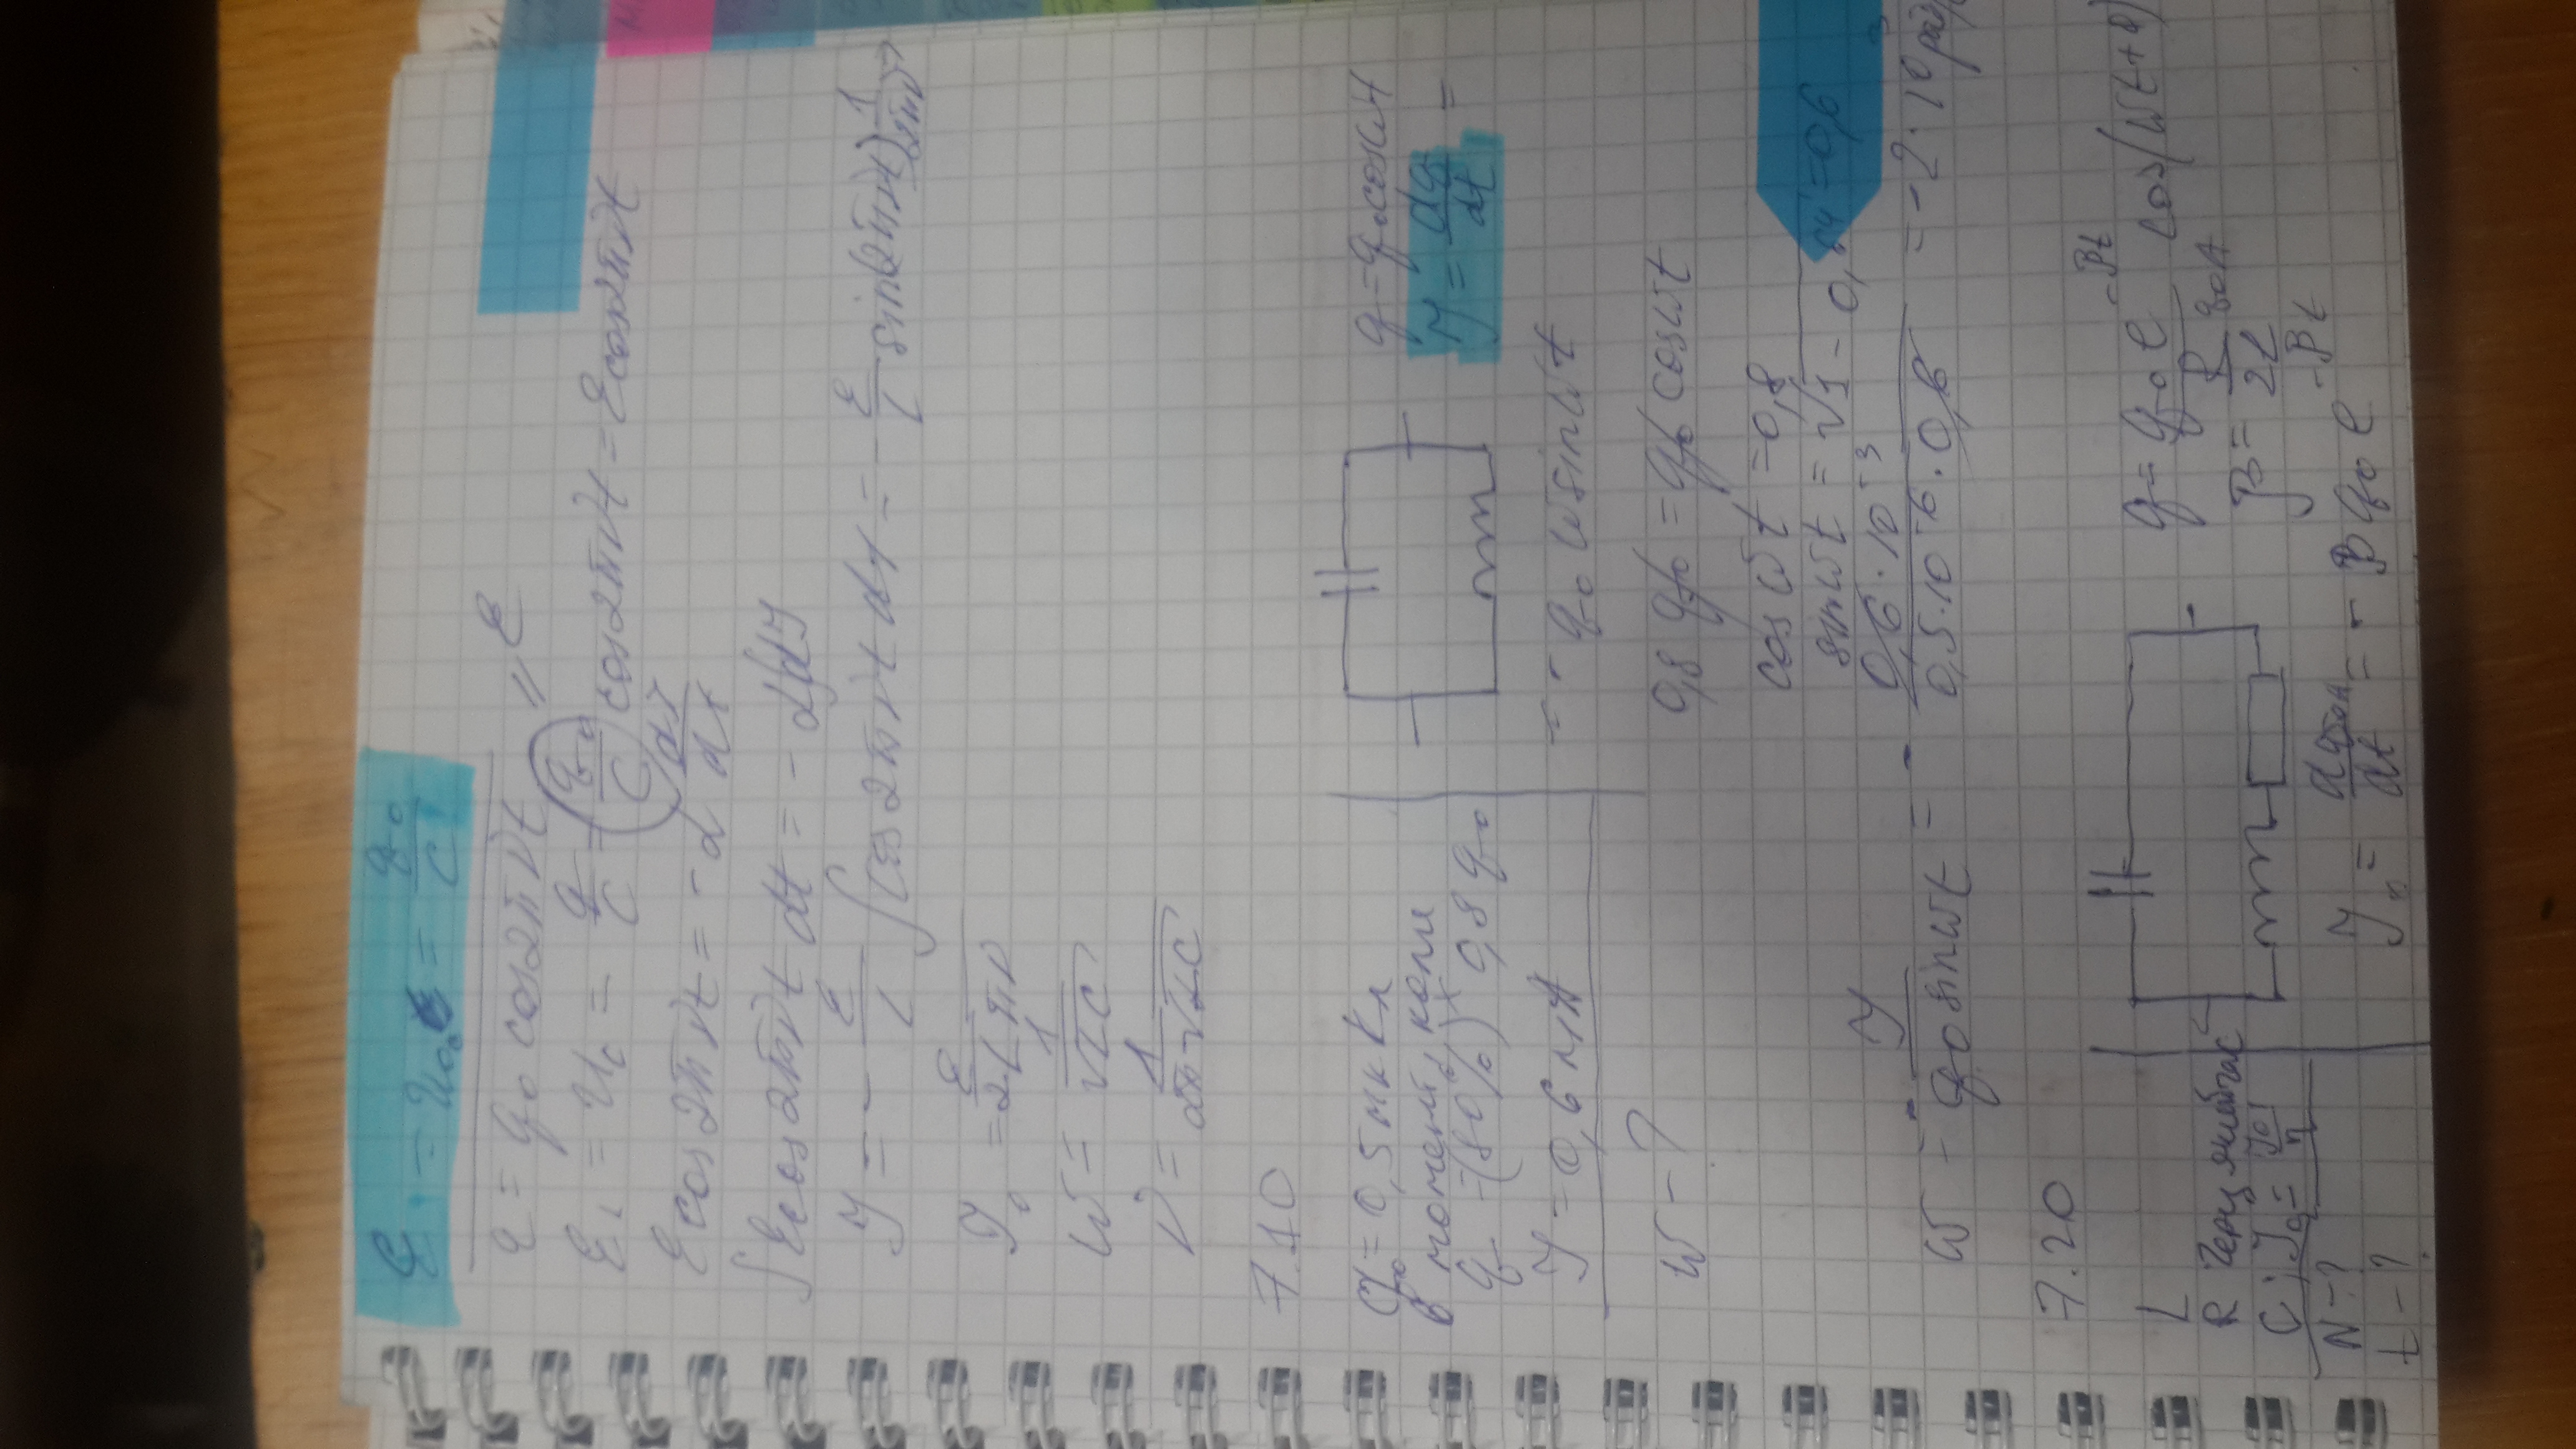 ℰ₁ = U₀c = q₀/C
q = q₀ cos2πνt
= ℰ
ℰᵢ = U_c = q/C = q₀/C cos2πνt = ℰcos2πνt
ℰcos2πνt = -L dJ/dt
∫ℰcos2πνt dt = -L∫dJ
J = - ℰ/L ∫cos2πνt dt = - ℰ/L sin(2πνt) 1/2πν
J₀ = ℰ/2Lπν
ω = 1/√LC
ν = 1/2π√LC
7.10
q₀ = 0,5 мкКл
в момент, когда
q = (80%) 0,8 q₀
J = 0,6 мА
ω - ?
q = q₀cosωt
J = dq/dt =
= - q₀ ωsinωt
0,8 q₀ = q₀ cosωt
cosωt = 0,8
sinωt = √1 - 0,64 = 0,6
ω = - J/q₀sinωt = - 0,6·10⁻³/0,5·10⁻⁶·0,6 = -2·10³ рад/
7.20
L
R
C; J₀ = J₀/η
N - ?
t - ?
q = q₀ e^-βt cos(ωt+
β = R/2L
q₀A
J₀ = dq₀A/dt = - β q₀ e^-βt